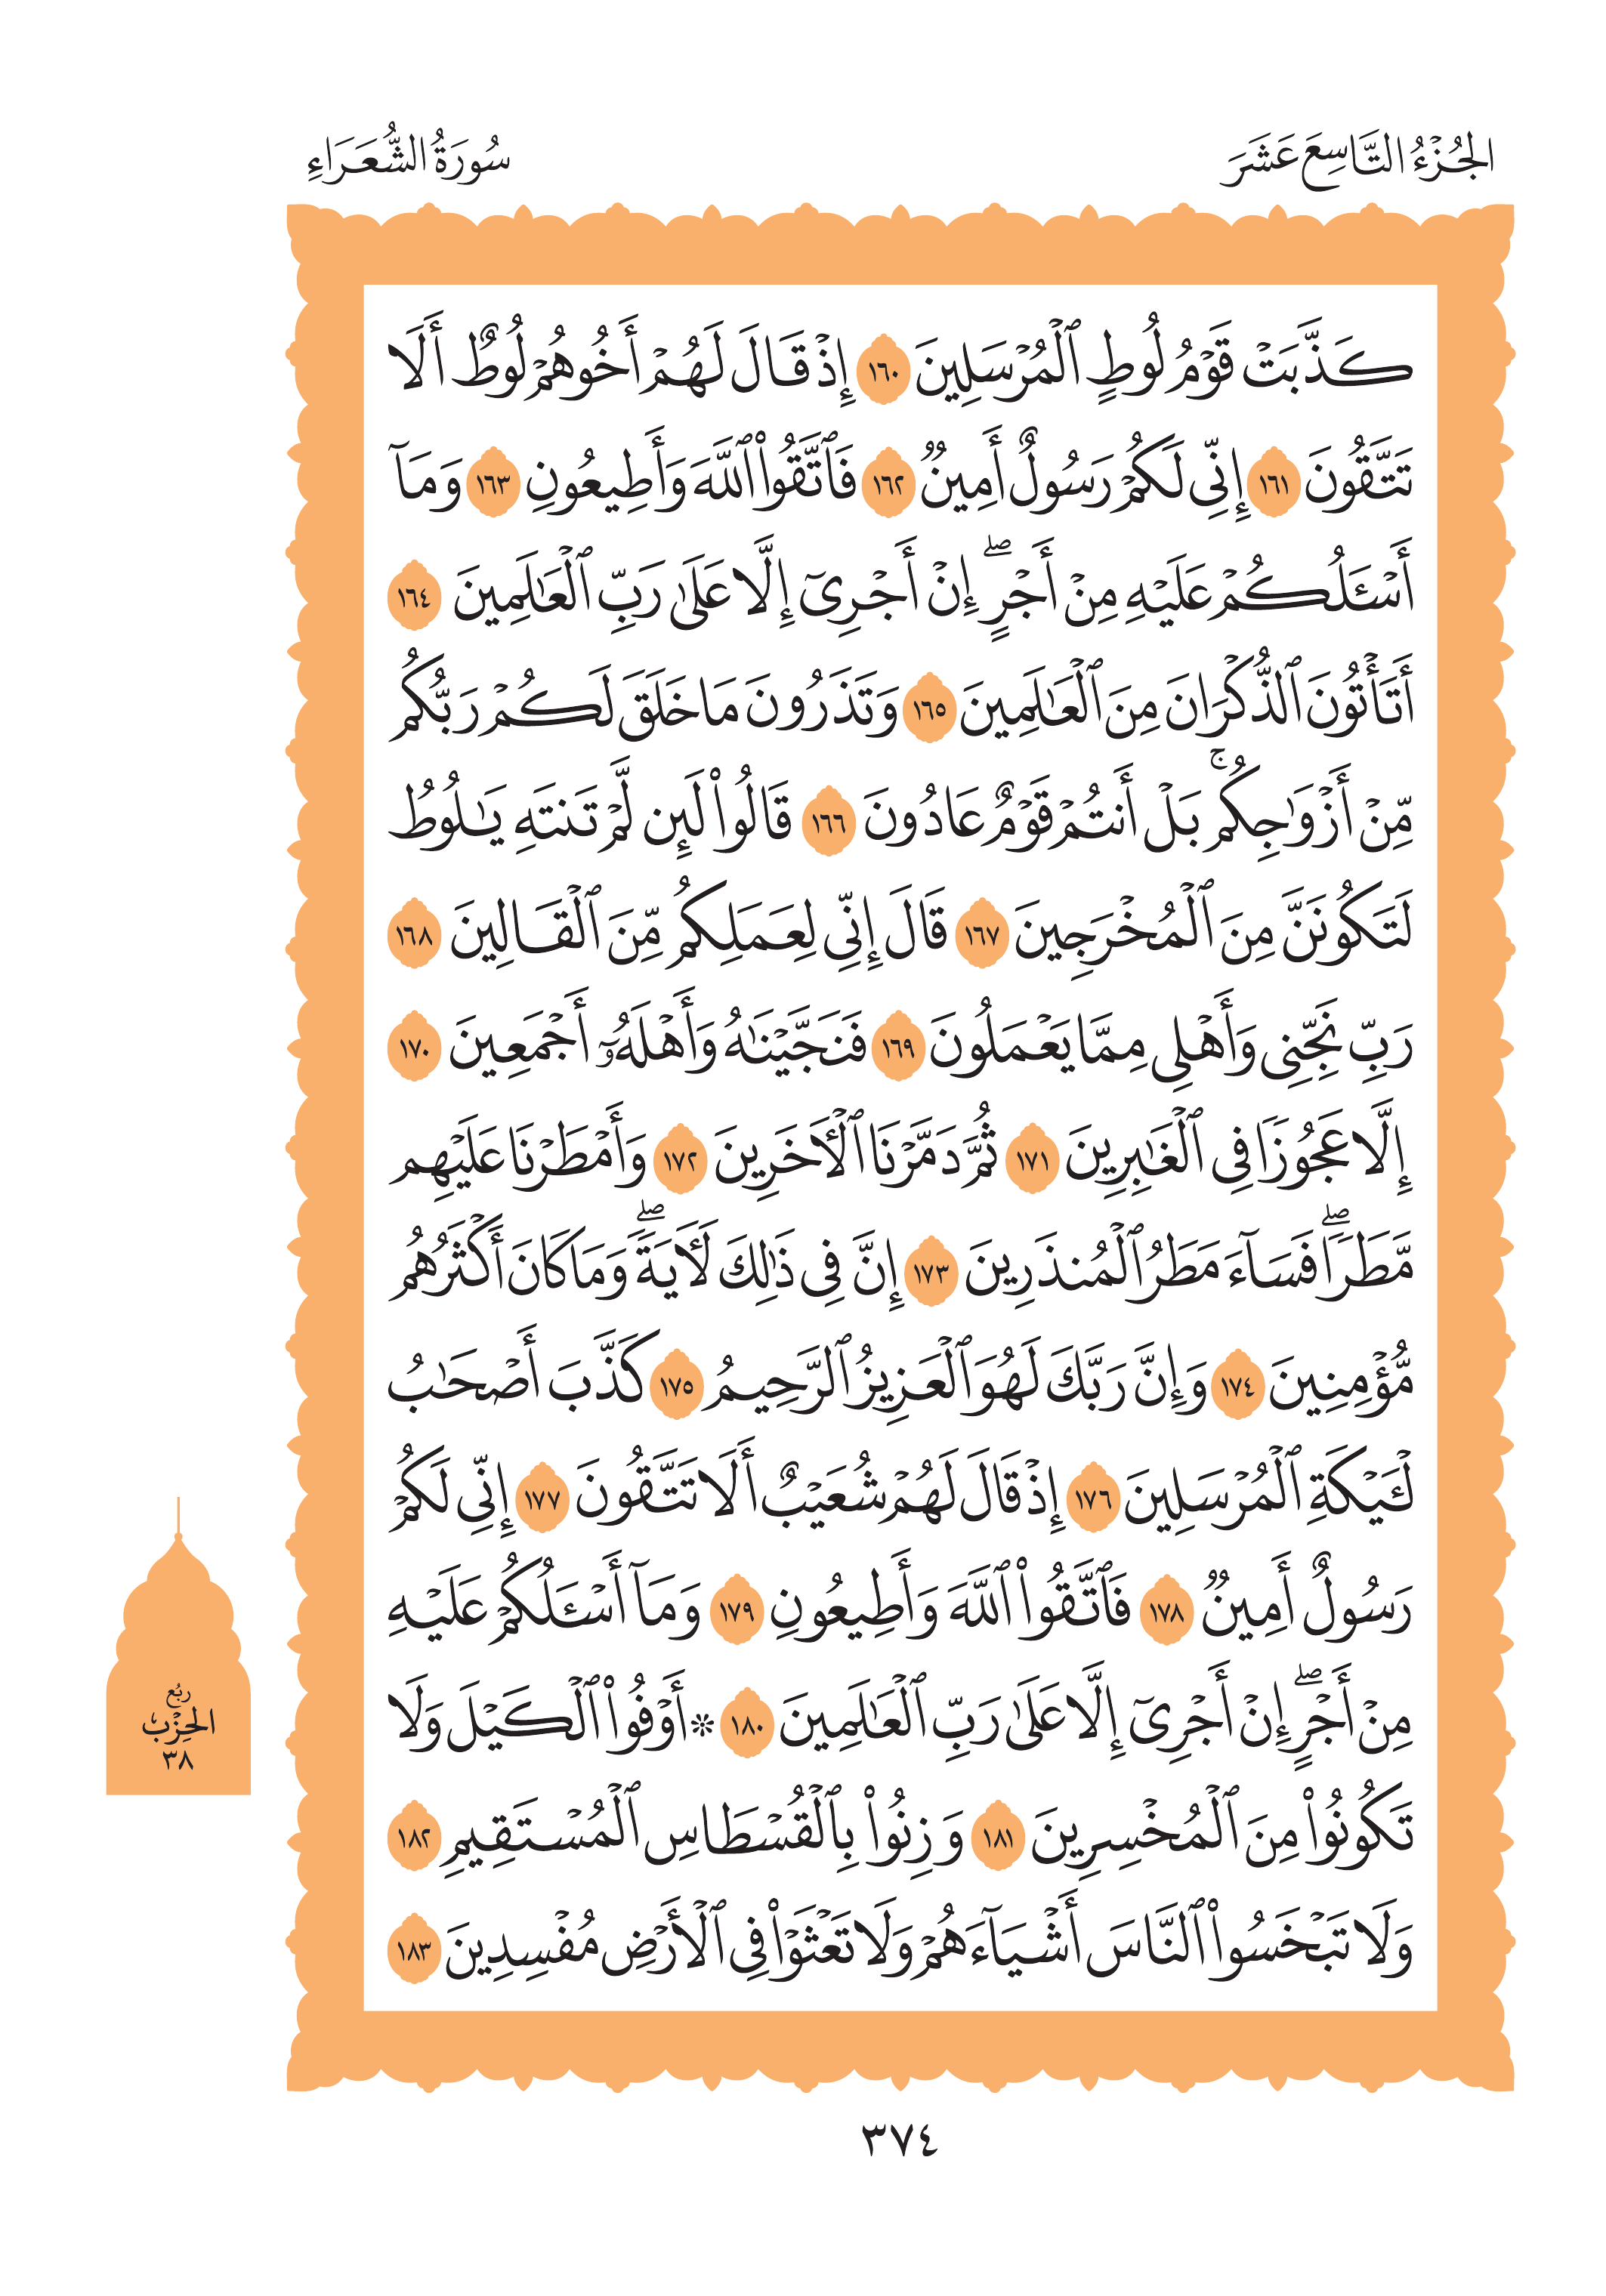 الجُزْءُ التَّاسِعَ عَشَرَ
سُورَةُ الشُّعَرَاءِ
كَذَّبَتْ قَوْمُ لُوطٍ ٱلْمُرْسَلِينَ ١٦٠ إِذْ قَالَ لَهُمْ أَخُوهُمْ لُوطٌ أَلَا
تَتَّقُونَ ١٦١ إِنِّي لَكُمْ رَسُولٌ أَمِينٌ ١٦٢ فَٱتَّقُوا۟ ٱللَّهَ وَأَطِيعُونِ ١٦٣ وَمَآ
أَسْـَٔلُكُمْ عَلَيْهِ مِنْ أَجْرٍ ۖ إِنْ أَجْرِىَ إِلَّا عَلَىٰ رَبِّ ٱلْعَـٰلَمِينَ ١٦٤
أَتَأْتُونَ ٱلذُّكْرَانَ مِنَ ٱلْعَـٰلَمِينَ ١٦٥ وَتَذَرُونَ مَا خَلَقَ لَكُمْ رَبُّكُم
مِّنْ أَزْوَٰجِكُم ۚ بَلْ أَنتُمْ قَوْمٌ عَادُونَ ١٦٦ قَالُوا۟ لَئِن لَّمْ تَنتَهِ يَـٰلُوطُ
لَتَكُونَنَّ مِنَ ٱلْمُخْرَجِينَ ١٦٧ قَالَ إِنِّي لِعَمَلِكُم مِّنَ ٱلْقَالِينَ ١٦٨
رَبِّ نَجِّنِي وَأَهْلِي مِمَّا يَعْمَلُونَ ١٦٩ فَنَجَّيْنَـٰهُ وَأَهْلَهُۥٓ أَجْمَعِينَ ١٧٠
إِلَّا عَجُوزًا فِي ٱلْغَـٰبِرِينَ ١٧١ ثُمَّ دَمَّرْنَا ٱلْـَٔاخَرِينَ ١٧٢ وَأَمْطَرْنَا عَلَيْهِم
مَّطَرًا ۖ فَسَآءَ مَطَرُ ٱلْمُنذَرِينَ ١٧٣ إِنَّ فِي ذَٰلِكَ لَـَٔايَةً ۖ وَمَا كَانَ أَكْثَرُهُم
مُّؤْمِنِينَ ١٧٤ وَإِنَّ رَبَّكَ لَهُوَ ٱلْعَزِيزُ ٱلرَّحِيمُ ١٧٥ كَذَّبَ أَصْحَـٰبُ
لْـَٔيْكَةِ ٱلْمُرْسَلِينَ ١٧٦ إِذْ قَالَ لَهُمْ شُعَيْبٌ أَلَا تَتَّقُونَ ١٧٧ إِنِّي لَكُمْ
رَسُولٌ أَمِينٌ ١٧٨ فَٱتَّقُوا۟ ٱللَّهَ وَأَطِيعُونِ ١٧٩ وَمَآ أَسْـَٔلُكُمْ عَلَيْهِ
مِنْ أَجْرٍ ۖ إِنْ أَجْرِىَ إِلَّا عَلَىٰ رَبِّ ٱلْعَـٰلَمِينَ ١٨٠ ۞ أَوْفُوا۟ ٱلْكَيْلَ وَلَا
تَكُونُوا۟ مِنَ ٱلْمُخْسِرِينَ ١٨١ وَزِنُوا۟ بِٱلْقُسْطَاسِ ٱلْمُسْتَقِيمِ ١٨٢
وَلَا تَبْخَسُوا۟ ٱلنَّاسَ أَشْيَآءَهُمْ وَلَا تَعْثَوْا۟ فِي ٱلْأَرْضِ مُفْسِدِينَ ١٨٣
رُبُع
الحِزْب
٣٨
٣٧٤